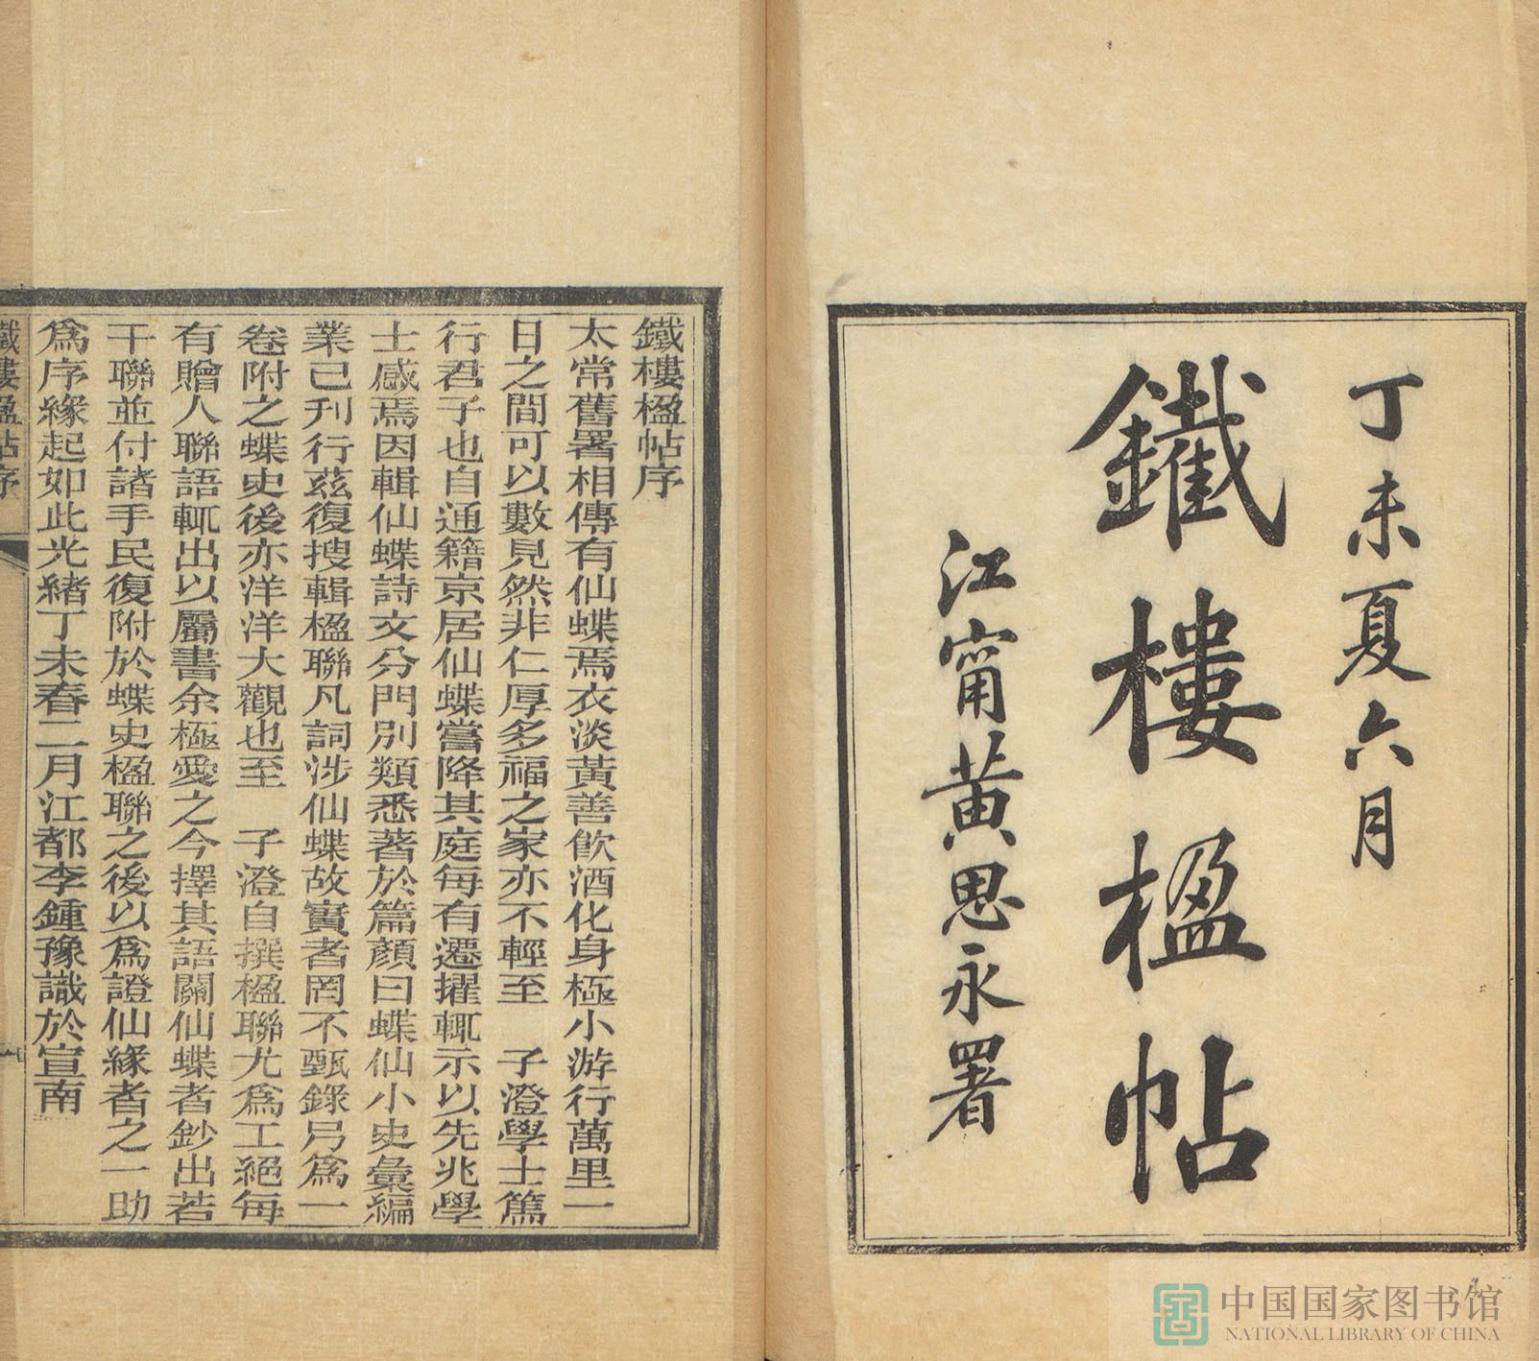 丁未夏六月
鐵樓楹帖
江甯黃思永署
鐵樓楹帖序
太常舊署相傳有仙蝶焉衣淡黃善飲酒化身極小游行萬里一
日之間可以數見然非仁厚多福之家亦不輕至　子澄學士篤
行君子也自通籍京居仙蝶嘗降其庭每有遷擢輒示以先兆學
士感焉因輯仙蝶詩文分門別類悉著於篇顏曰蝶仙小史彙編
業已刊行茲復搜輯楹聯凡詞涉仙蝶故實者罔不甄錄弓為一
卷附之蝶史後亦洋洋大觀也至　子澄自撰楹聯尤為工絕每
有贈人聯語輒出以屬書余極愛之今擇其語關仙蝶者鈔出若
干聯並付諸手民復附於蝶史楹聯之後以爲證仙緣者之一助
爲序緣起如此光緒丁未春二月江都李鍾豫識於宣南
鐵樓楹帖序
中国国家图书馆
NATIONAL LIBRARY OF CHINA